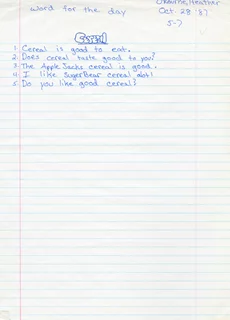 Heather
word for the day
Oct. 28 '87
5-7
1. Cereal is good to eat.
2. Does cereal taste good to you?
3. The Apple Jacks cereal is good.
4. I like Sugar Bear cereal alot!
5. Do you like good cereal?